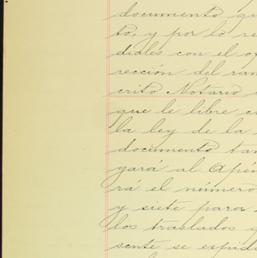 documento q
to, y por lo re
diales con el o
rección del ra
crito Notario
que le libre c
la ley de la
documento tan
gará al Apén
rá el número
y siete para
los traslados
sente se expid